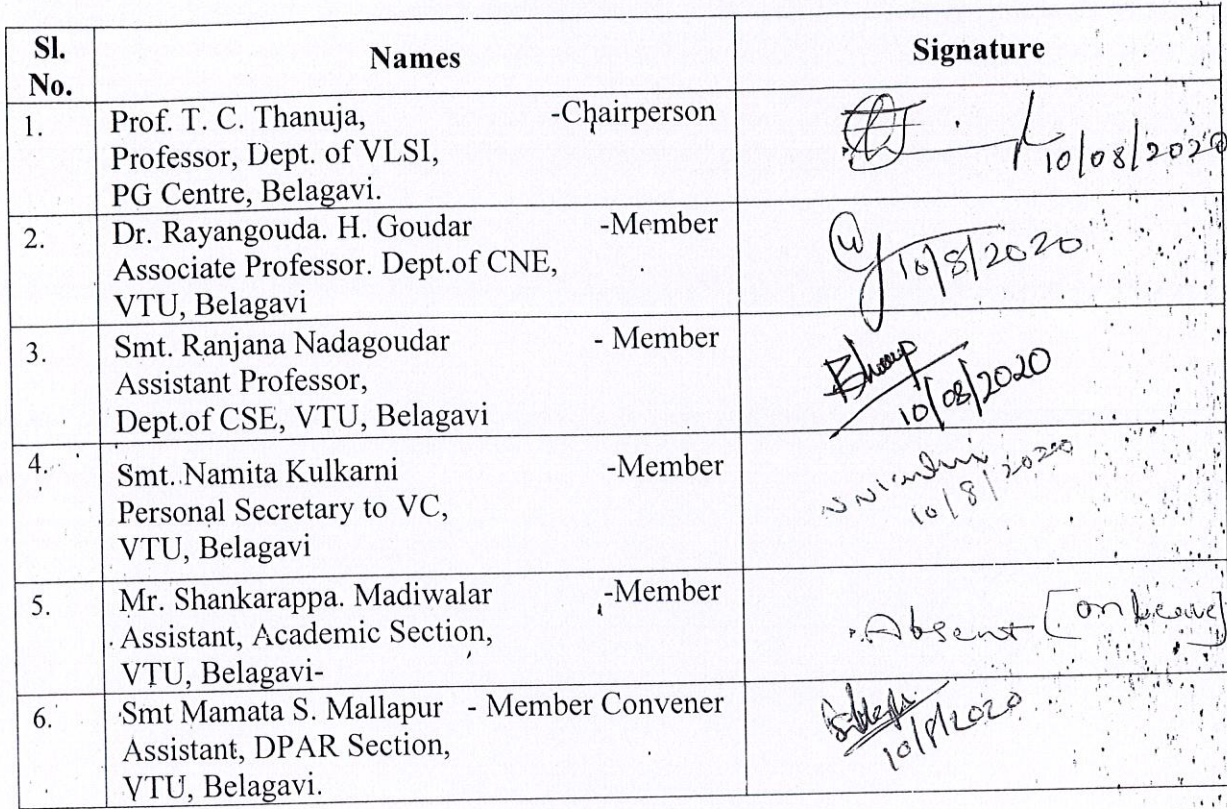 Sl. No. Names Signature
1. Prof. T. C. Thanuja, -Chairperson
Professor, Dept. of VLSI,
PG Centre, Belagavi.
10/08/2020
2. Dr. Rayangouda. H. Goudar -Member
Associate Professor. Dept.of CNE,
VTU, Belagavi
10/8/2020
3. Smt. Ranjana Nadagoudar - Member
Assistant Professor,
Dept.of CSE, VTU, Belagavi
10/08/2020
4. Smt. Namita Kulkarni -Member
Personal Secretary to VC,
VTU, Belagavi
10/8/2020
5. Mr. Shankarappa. Madiwalar -Member
Assistant, Academic Section,
VTU, Belagavi-
Absent [on leave]
6. Smt Mamata S. Mallapur - Member Convener
Assistant, DPAR Section,
VTU, Belagavi.
10/8/2020